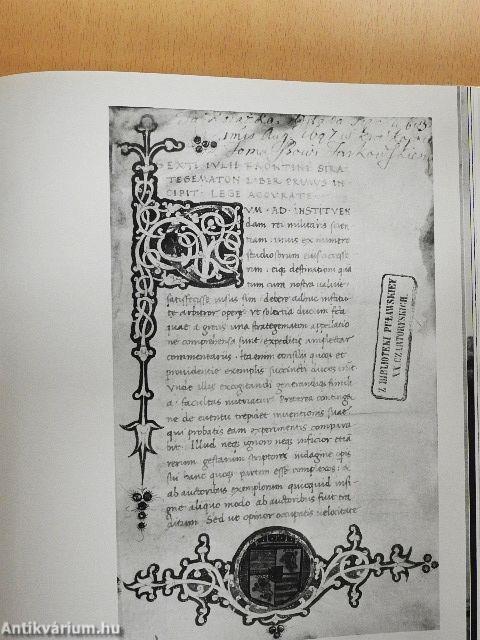 EXTI IVLII FRONTINI STRA
TEGEMATON LIBER PRIMVS IN
CIPIT · LEGE ACCVRATE ·
VM · AD · INSTITVEN
dam rei militaris scien
tiam · unus ex numero
studiosorum eius accesse
rim · eiq; destinationi qua
tum cura nostra ualuit
satisfecisse uisus sim · debere adhuc institu
te arbitror opere · ut solertia ducum facta
quae a grecis una strategematon appellatio
ne comprehensa sunt expeditis amplectar
commentariis · Ita enim consilii quoq; et
providentie exemplis succincti duces erunt
Vnde illis excogitandi generandiq; simili
a facultas nutriatur Preterea continget
ne de euentu trepidet inuentionis suae
qui probatis eam experimentis compara
bit · Illud neq; ignoro neq; inficior etiã
rerum gestarum scriptores indagine operis
sui hanc quoq; partem esse complexos ; &
ab auctoribus exemplorum quicquid insi
gne aliquo modo ab auctoribus fuit tra
ditum · Sed ut opinor occupatis velocitate
Z BIBLIOTEKI PUŁAWSKIEY
XX CZARTORYSKICH
Antikvárium.hu